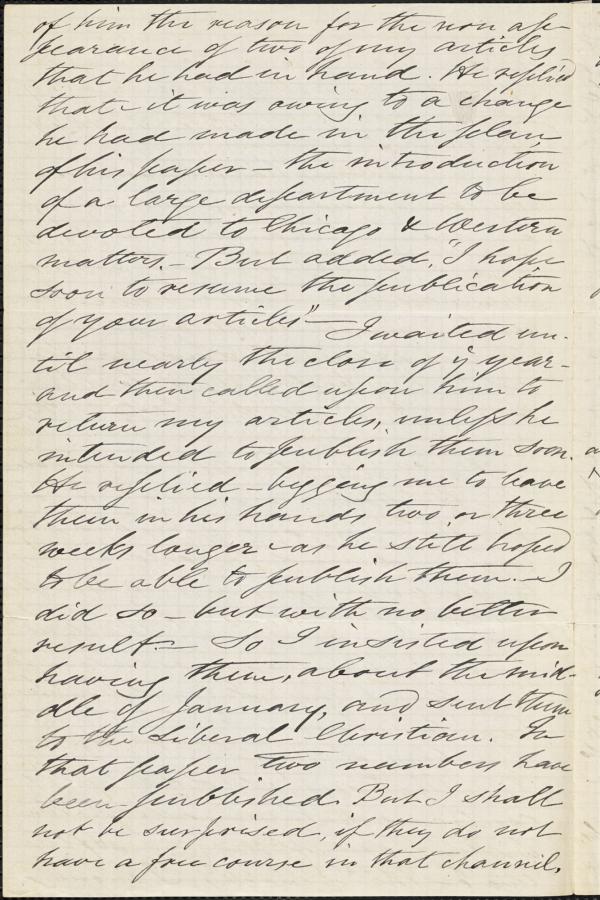 of him the reason for the non ap-
pearance of two of my articles
that he had in hand. He replied
that it was owing to a change
he had made in the plan
of his paper – the introduction
of a large department to be
devoted to Chicago & Western
matters. – But added, "I hope
soon to resume the publication
of your articles" – I waited un-
til nearly the close of ye year –
and then called upon him to
return my articles, unless he
intended to publish them soon.
He replied – begging me to leave
them in his hands two or three
weeks longer – as he still hoped
to be able to publish them. – I
did so – but with no better
result. – So I insisted upon
having them, about the mid-
dle of January, and sent them
to the Liberal Christian. In
that paper two numbers have
been published. But I shall
not be surprised, if they do not
have a free course in that channel.